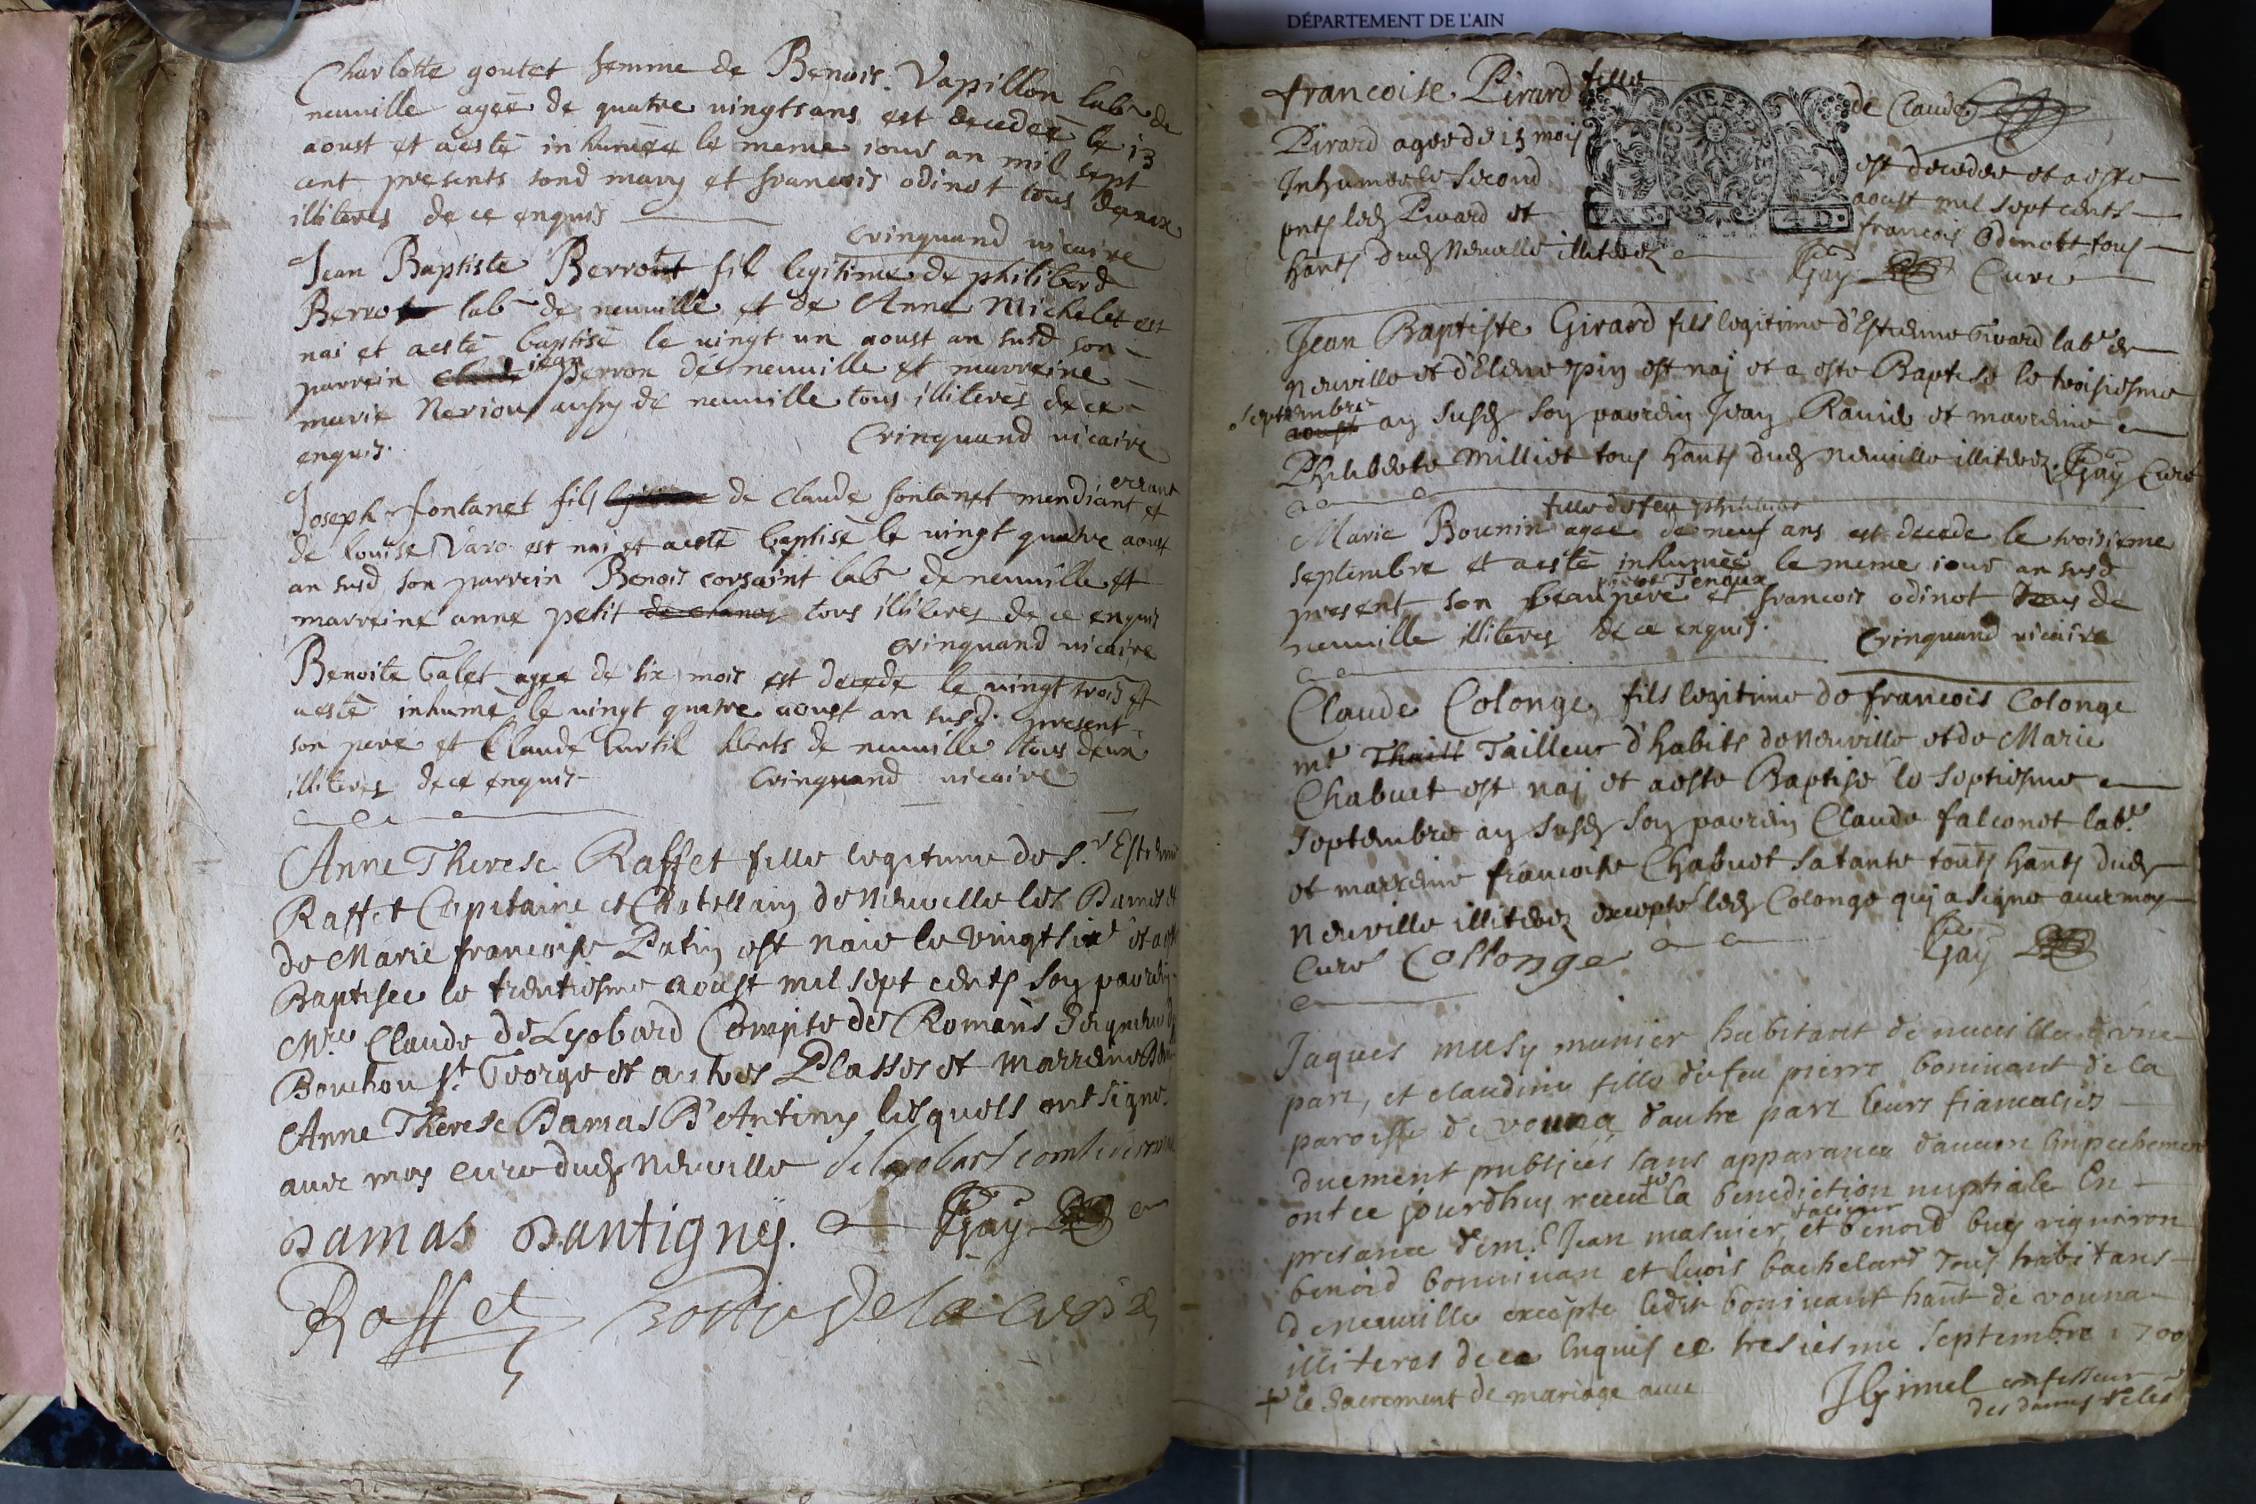 DÉPARTEMENT DE L'AIN
Charlotte goutet femme de Benois Vapillon labr de
neuville agée de quatre vingtsans est decedée le 13
aoust et aesté inhumée le meme iour an mil sept
cent presents sond mary et francois odinot tous deux
illiteres de ce enquis
Crinquand vicaire
Jean Baptiste Berrot fil legitime de philiberd
Berrot labr de neuville et de Anne Michelet est
nai et aesté baptisé le vingt un aoust an susd son
parrein claude jean perron de neuville et marreine
marie Neriou aussy de neuville tous illiteres de ce
enquis.
Crinquand vicaire
Joseph fontanet fils de Claude fontanet mendiant errant et
de Louise Varo est nai et aesté baptisé le vingt quatre aoust
an susd son parrein Benois corsaint labr de neuville et
marreine anne petit tous illiteres de ce enquis
crinquand vicaire
Benoite Galet agee de six mois est decede le vingt trois et
aesté inhumé le vingt quatre aoust an susd. present
son pere et Claude Curtil hbnts de neuville tous deux
illiteres de ce enquis
Crinquand vicaire
Anne Therese Raffet fille legitime de Sr Estienne
Raffet Capitaine et Chatellain de Neuville les Dames et
de Marie francoise Patin est naie le vingtsixe et a este
Baptisee le trentiesme aoust mil sept cents son parrein
Mre Claude de Lyobard Compte des Romans Seigneur du
Bouchou St George et autres Places et marreine Dame
Anne Therese Damas D'Antigny lesquels ont signe
avec moy cure dud Neuville de lyobard comte de romans
Damas Dantigny. Gay
Raffet
francoise Pirard fille de Claude
Pirard agee de 15 mois est decedee et a este
Inhumee le second aoust mil sept cents
pnts led Pirard et francois Odinott tous
hants dud Neuville illiterez Gay Curé
Jean Baptiste Girard fils legitime d'Estienne Girard labr de
Neuville et d'Elene pin est naj et a este Baptisé le troisiesme
septembre aoust an susd son parrein Jean Ravie et marreine
Philiberte Milliet tous hants dud Neuville illiterez. Gay Curé
fille de feu philibert
Marie Bounin agee de neuf ans est decede le troisieme
septembre et aesté inhumée le meme iour an susd
present son beaupere Tenoux et francois odinot tous de
neuville illiteres de ce enquis.
Crinquand vicaire
Claude Colonge fils legitime de francois Colonge
me Tailleur d'habits de Neuville et de Marie
Chabuet est naj et aeste Baptisé le septiesme
septembre an susd son parrein Claude falconet labr
et marreine francoise Chabuet sa tante touts hants dud
Neuville illiterez excepté led Colonge qui a signe avec moy
Cure Collonge Gay
Jaques musy munier habitant de neuville dune
part, et claudine fille de feu pierre bonivant de la
paroisse de vouna dautre part leurs fiancalies
duement publiees sans apparance daucun empechement
ont ce jourdhuy receu la benediction nuptiale en
presance de mr Jean masuier, et benoid buy vigneron
benoid bonivan et luois bachelard tous habitans
de neuville excepte ledit bonivant hant de vouna
illiteres de ce enquis ce tresiesme septembre 1700
+ le sacrement de mariage avec
JGimel confesseur
des dames